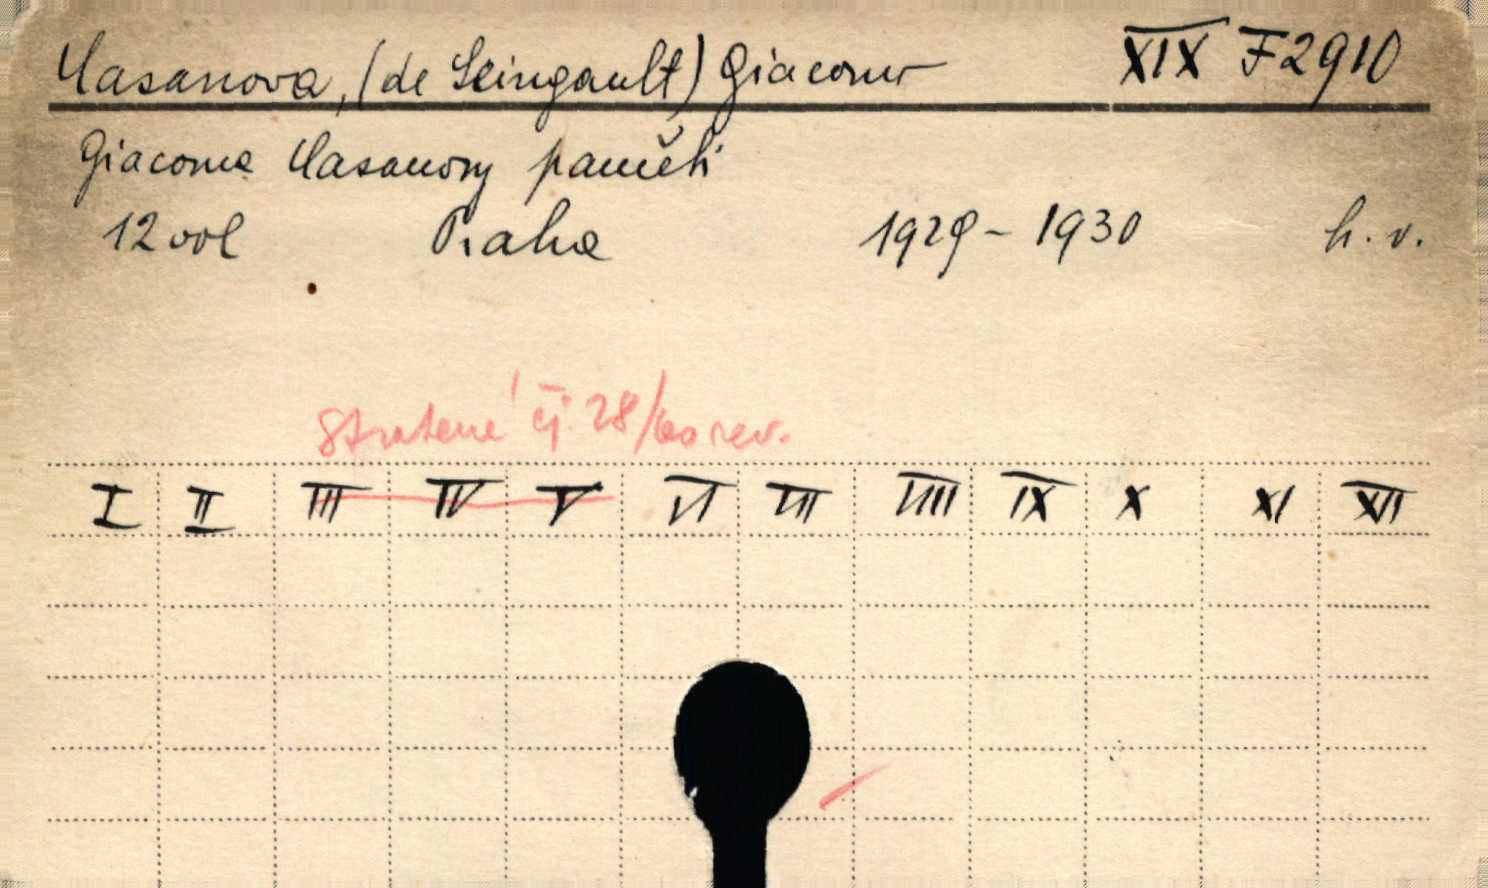 Casanova, (de Seingault) Giacomo XIX F2910
Giacoma Casanovy paměti
12 vol Praha 1929 - 1930 h. v.
Stratené čj. 28/60 rev.
I II III IV V VI VII VIII IX X XI XII